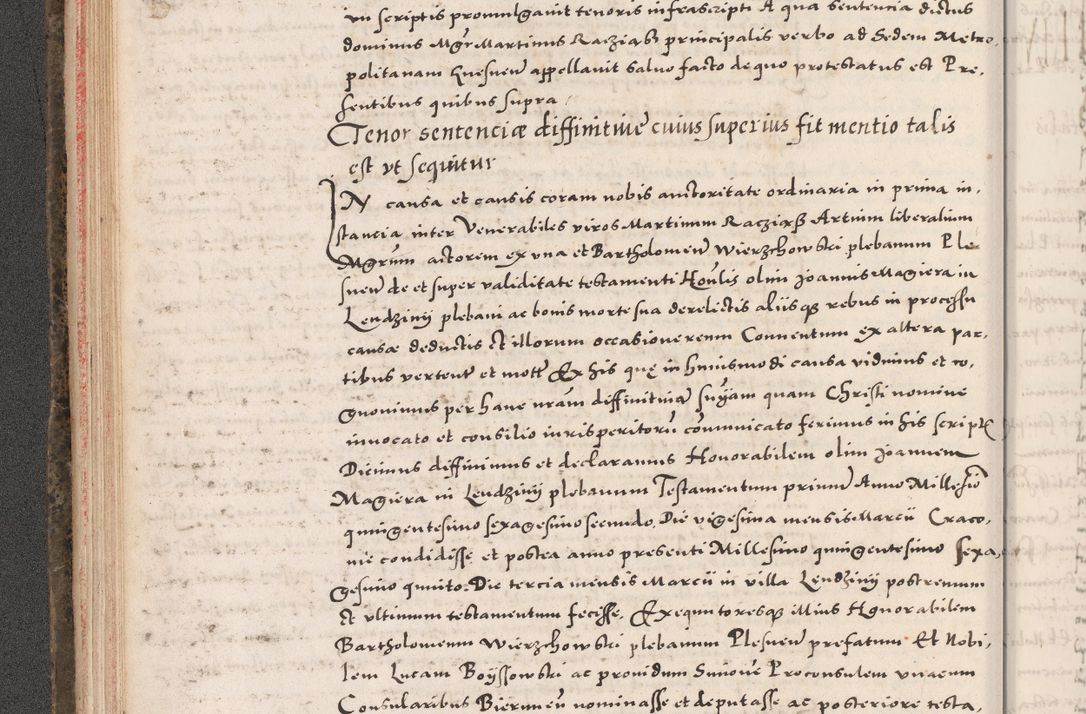 un scriptis promulgavit tenoris infrascripti A qua sentencia dictus
dominus Mgr Martinus Racziąsz principalis verbo ad Sedem Metro,
politanam Gnesnen̄ appellavit salvo facto de quo protestatus est Pre,
sentibus quibus supra
Tenor sentenciæ diffinitive cuius superius fit mentio talis
est ut sequitur
IN causa et causis coram nobis auctoritate ordinaria in prima in,
stancia inter Venerabiles viros Martinum Racziąsz Artium liberalium
Mgrum actorem ex una et Bartholomeum Wierzchowski plebanum Ple
snen̄ de et super validitate testamenti Honlis olim Joannis Magiera in
Lendzinÿ plebani ac bonis morte sua derelictis aliisqȝ rebus in processu
causæ deductis et illorum occasione reum Conventum ex altera par,
tibus verten̄t et mot̄ Ex his quę in huiusmodi causa vidimus et co,
gnovimus per hanc nr̄am diffinitivā sn̄iam quam Christi nomine
invocato et consilio iurisperitorū cōmunicato ferimus in his script̄
Dicimus diffinimus et declaramus Honorabilem olim Joannem
Magiera in Lendzinÿ plebanum Testamentum primum Anno Millesīo
quingentesimo sexagesimo secundo, Die vigesima mensis Marcii Craco,
uie condidisse et postea anno presenti Millesimo quingentesimo sexa,
gesimo quinto. Die tercia mensis Marcii in villa Lendzinÿ postremum
et ultimum testamentum fecisse, Exequutoresqȝ illius Honorabilem
Bartholomeum Wierzchowski plebanum Plesnen̄ prefatum Et Nobi,
lem Lucam Boÿssowski ac providum Proconsulem unacum
Consularibus nominasse et deputasse ac posteriore testa,